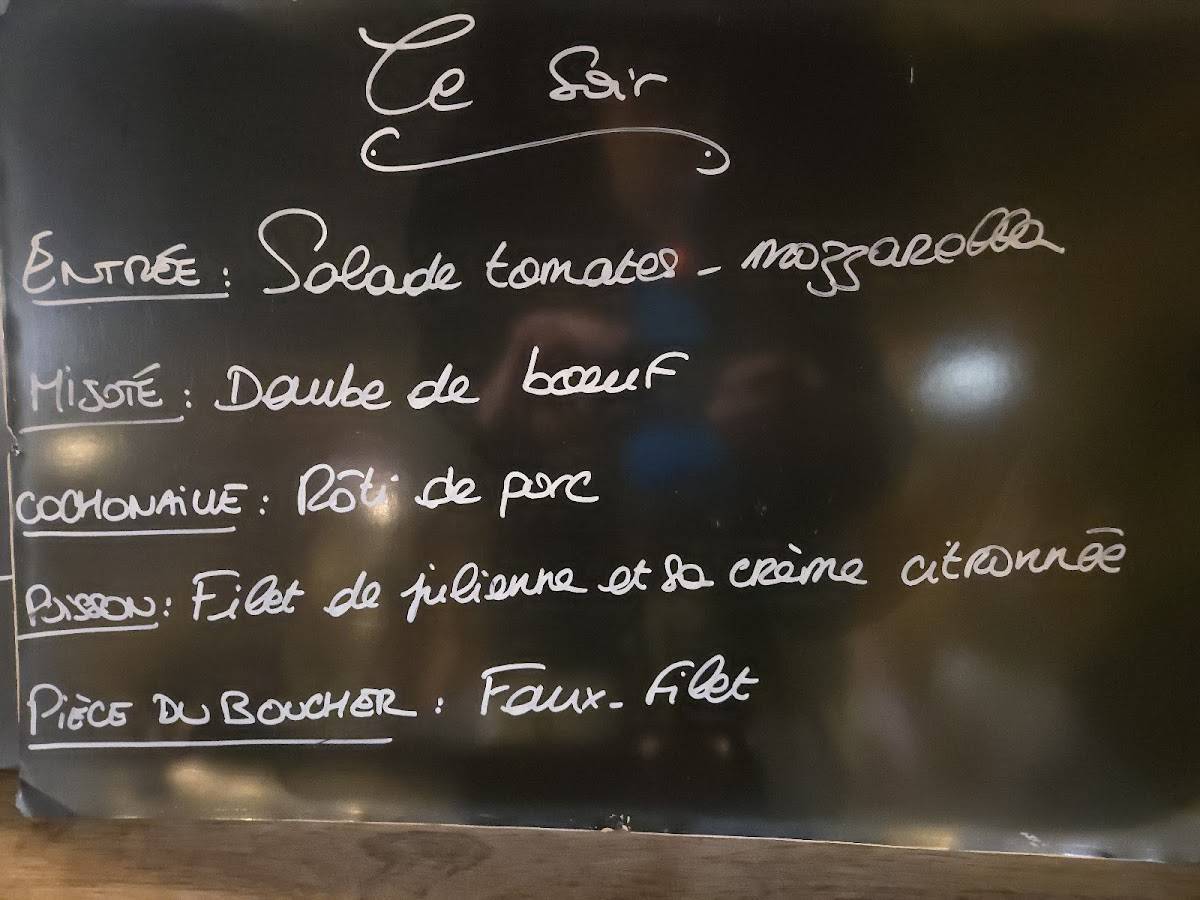 Ce Soir
ENTRÉE : Salade tomates - mozzarella
MIJOTÉ : Daube de bœuf
COCHONAILLE : Rôti de porc
POISSON : Filet de julienne et sa crème citronnée
PIÈCE DU BOUCHER : Faux-filet